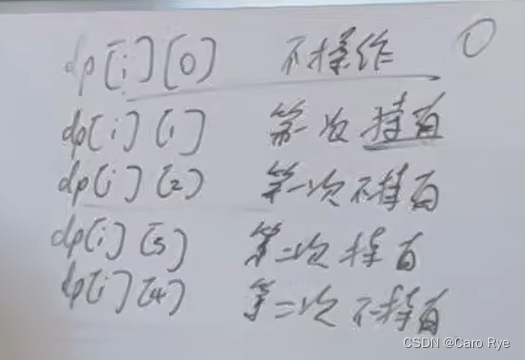 dp[i][0] 不操作 0
dp[i][1] 第一次持有
dp[i][2] 第一次不持有
dp[i][3] 第二次持有
dp[i][4] 第二次不持有
CSDN @Caro Rye